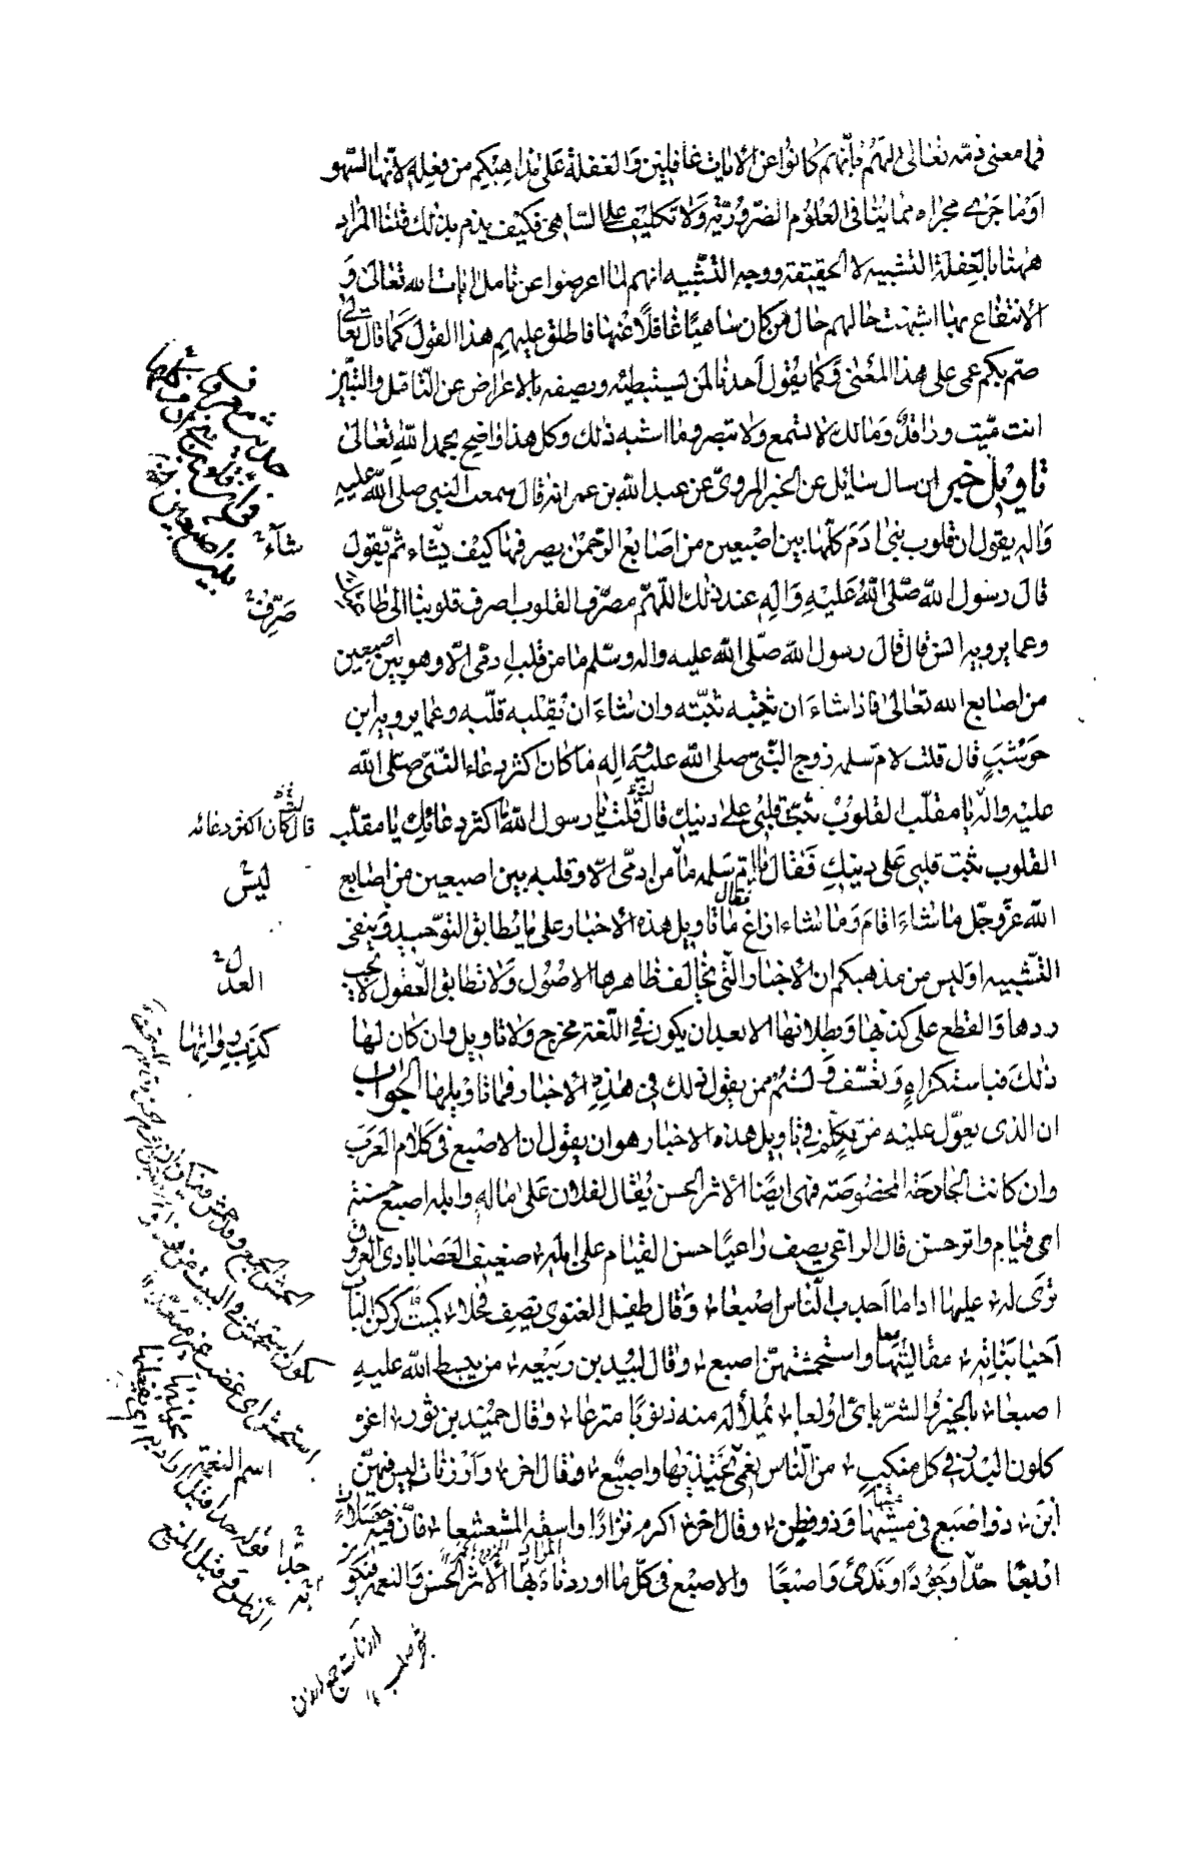 فما معنى ذمّه تعالى لهم بأنهم كانوا عن الآيات غافلين والغفلة على مذاهبكم من فعله لانّها السّهو
او ما جرى مجراه مما ينافى العلوم الضّروريّة ولا تكليف على السّاهى فكيف يذم بذلك قلنا المراد
ههنا بالغفلة التشبيه لا الحقيقة ووجه التّشبيه انهم لما اعرضوا عن تامل ايات الله تعالى و
الانتفاع بها اشبهت حالهم حال من كان ساهيًا غافلًا عنها فاطلق عليهم هذا القول كما قال تعالى
صمّ بكم عمى على هذا المعنى وكما يقول احدنا لمن يستبطئه ويصفه بالاعراض عن التّامّل والتبيّن
انت ميّت وراقد ومالك لا تسمع ولا تبصر وما اشبه ذلك وكل هذا واضح بحمد الله تعالى
تاويل خبر ان سال سائل عن الخبر المروىّ عن عبد الله بن عمر انه قال سمعت النبى صلى الله عليه
واله يقول ان قلوب بنى ادم كلّها بين اصبعين من اصابع الرّحمن يصرفها كيف يشاء ثم يقول
قال رسول الله صلّى الله عليه واله عند ذلك اللّهمّ مصرّف القلوب اصرف قلوبنا الى طاعتك
وعما يرويه انس قال قال رسول الله صلّى الله عليه واله وسلم ما من قلب ادمى الّا وهو بين اصبعين
من اصابع الله تعالى فاذا شاء ان يثبّته ثبّته وان شاء ان يقلبه قلّبه وعما يرويه ابن
حوشب قال قلت لام سلمه زوج النّبىّ صلى الله عليه واله ما كان اكثر دعاء النبىّ صلّى الله
عليه واله يا مقلّب القلوب ثبّت قلبى على دينك قالت قلت يا رسول الله ما اكثر دعائك يا مقلّب
القلوب ثبّت قلبى على دينك فقال يا ام سلمه ما من ادمّى الّا وقلبه بين اصبعين من اصابع
الله عزّ وجلّ ما شاء اقام وما شاء ازاغ فقال ما تاويل هذه الاخبار على ما يطابق التّوحيد وينفى
التّشبيه اوليس من مذهبكم ان الاخبار الّتى يخالف ظاهرها الاصول ولا تطابق العقول لا يجب
ردها والقطع على كذبها وبطلانها الا بعد ان يكون فى اللّغة مخرج ولا تاويل وان كان لها
ذلك فباستكراهٍ وتعسّف ولستم ممن يقول ذلك فى هذه الاخبار فما تاويلها الجواب
ان الذى يعوّل عليه من تكلّم فى تاويل هذه الاخبار هو ان يقول ان الاصبع فى كلام العرب
وان كانت الجارحة المخصوصة فهى ايضًا الاثر الحسن يقال لفلان على ماله وابله اصبع حسنة
اى قيام واثر حسن قال الراعى يصف راعيًا حسن القيام على ابله ضعيف العصا بادى العروق
ترى له عليها اذا ما اجدب النّاس اصبعا وقال طفيل الغنوى يصف فحلا كميت كركن الباب
احيا بناته مقاليتها واستحمشتهنّ اصبع وقال لبيد بن ربيعه من يبسط الله عليه
اصبعا بالخير والشر باىّ اولعا يملأ له منه ذنوبًا مترعا وقال حميد بن ثور اغر
كلون البدر فى كل منكب من النّاس نعمى يحتذيها واصبع وقال اخر وارزنات ليس فيهنّ
ابن ذو اصبع فى مسّها وذو فطن وقال اخر اكرم نزارًا واسقه المشعشعا فانّ فيه خصلات
اربعا حدّا وجودًا وندىً واصبعًا والاصبع فى كلّ ما اوردناه بها الاثر الحسن والنعمة فيكون
شاء
صرّف
قالت كان اكثر دعائه
ليس
العدل
كذب رواتها
اسم النغتر
ارزنات جمع ارزن
شجر صلب